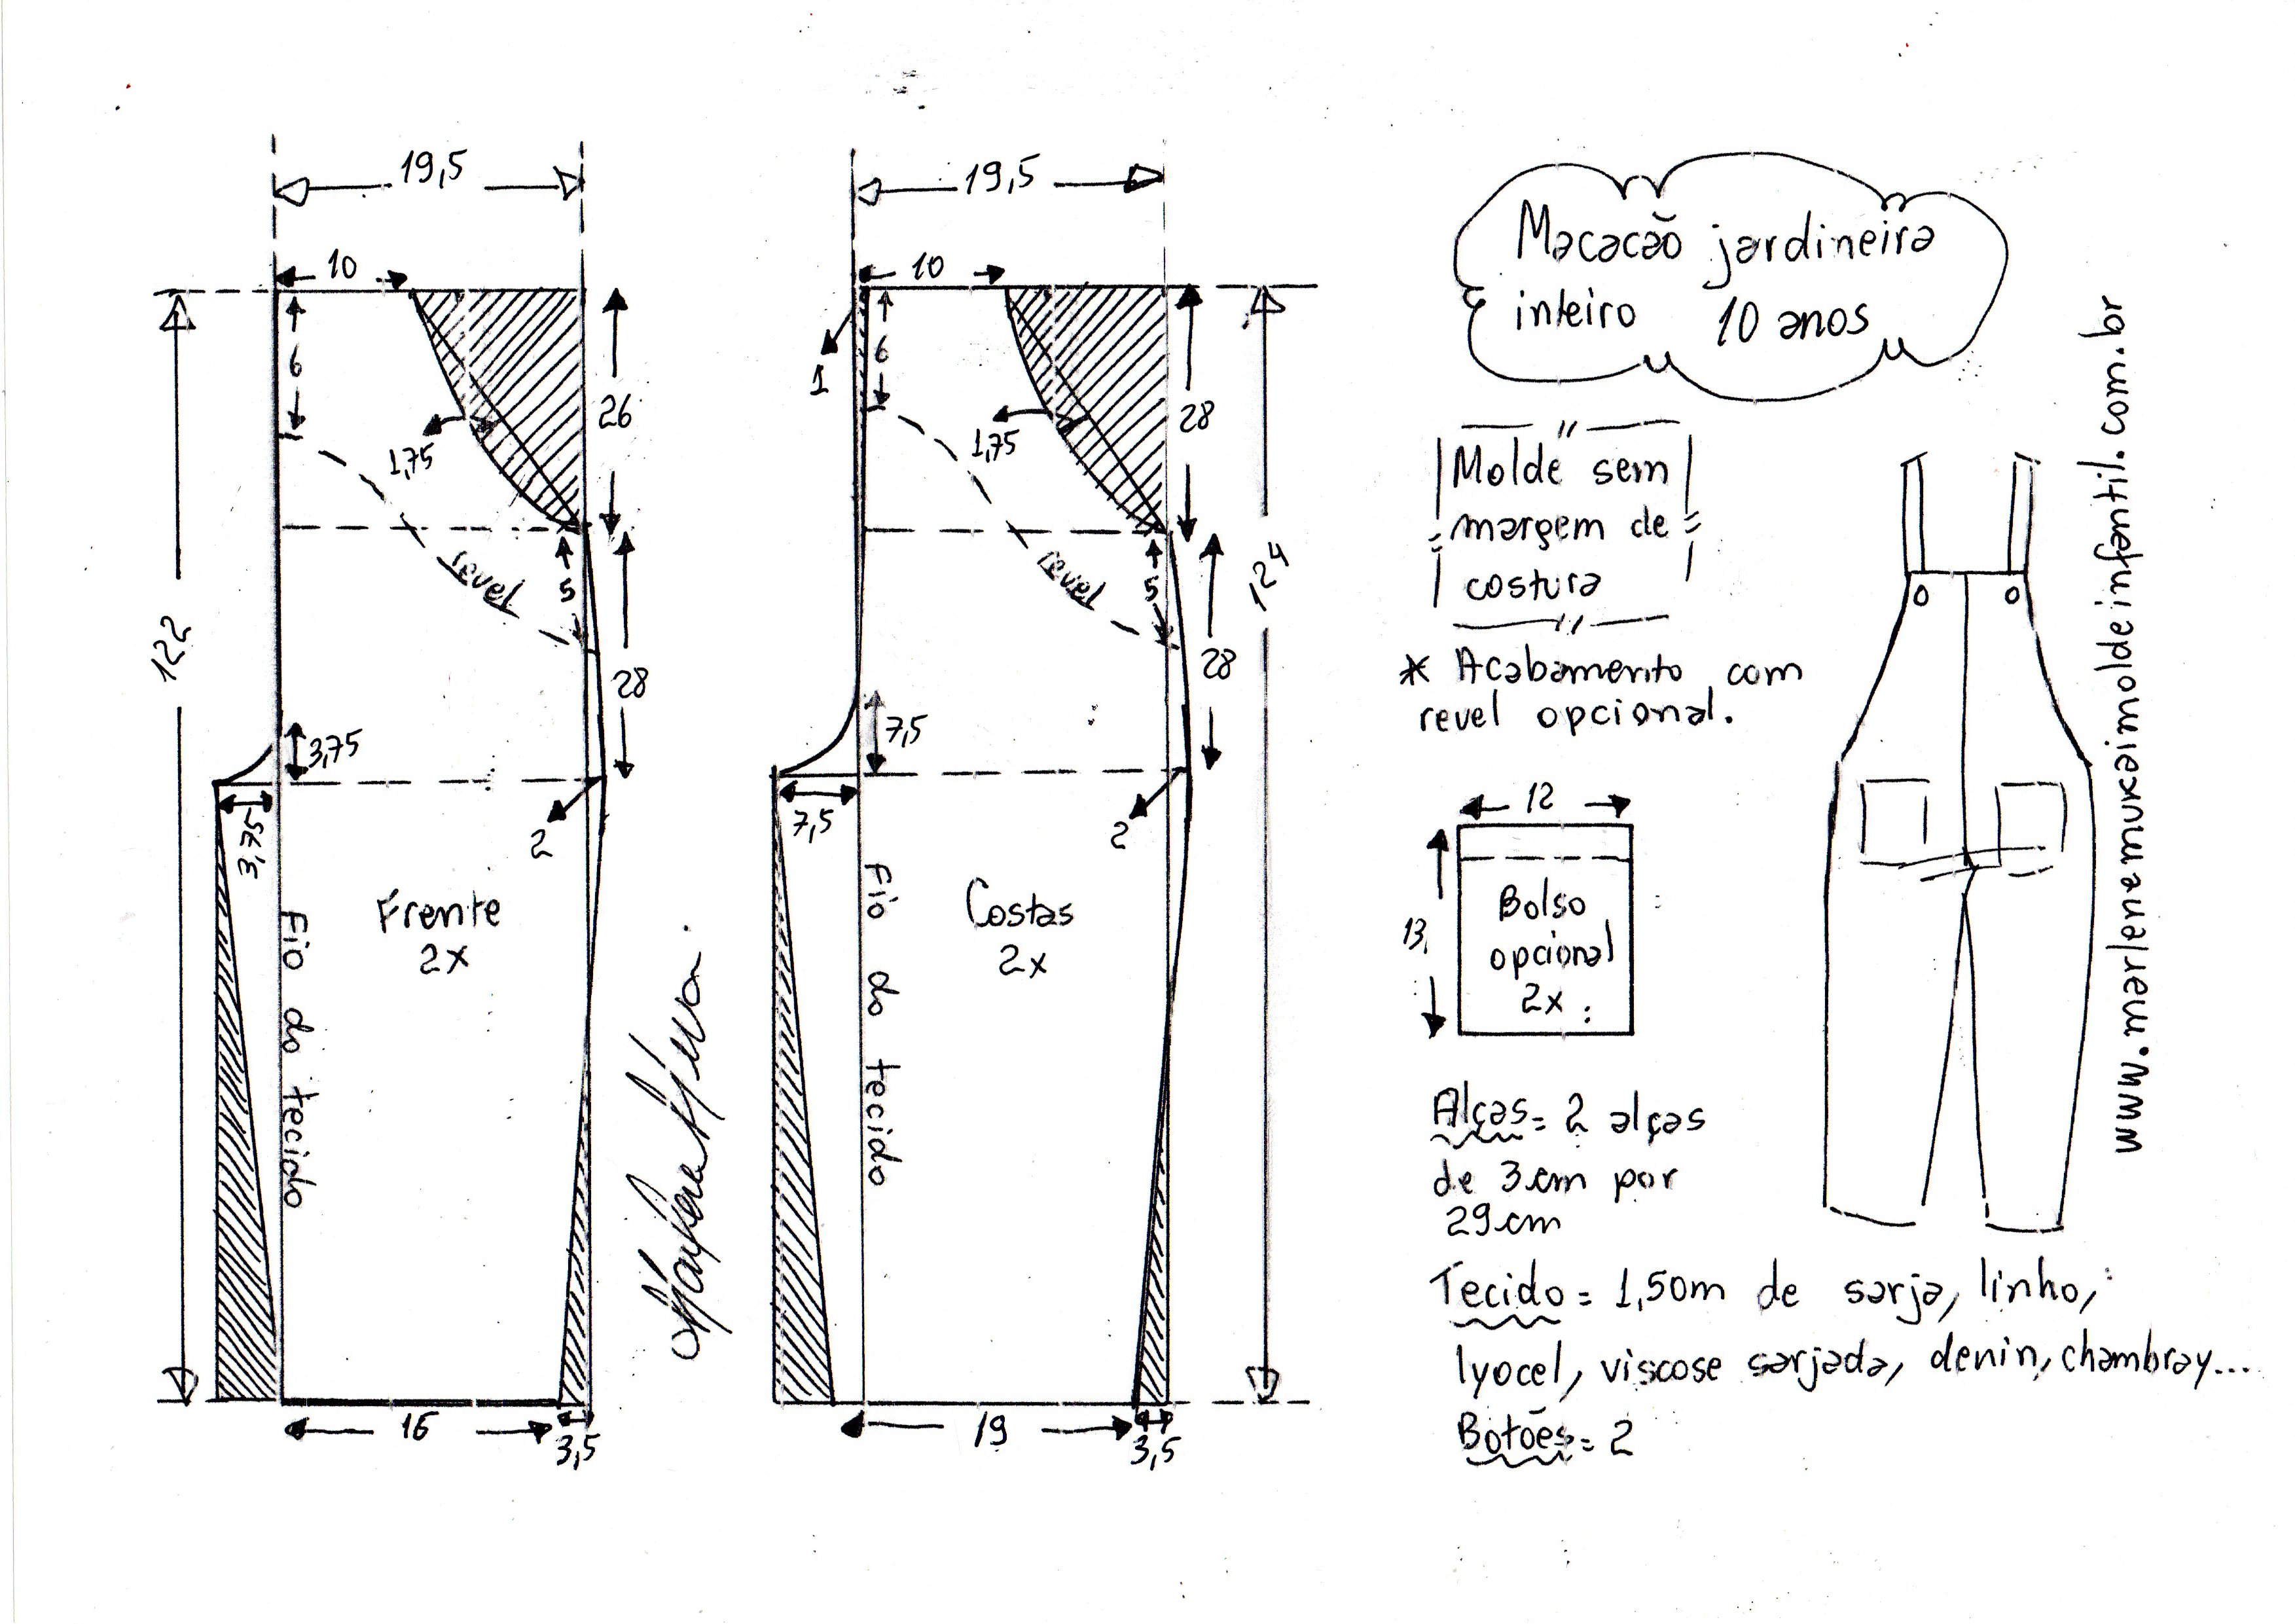 19,5
10
6
26
1,75
revel
5
28
122
3,75
3,75
2
Frente
2x
Fio do tecido
16
3,5
19,5
10
1
6
28
1,75
revel
5
28
124
7,5
7,5
2
Costas
2x
Fio do tecido
19
3,5
Macacão jardineira
inteiro 10 anos
Molde sem
margem de
costura
* Acabamento com
revel opcional.
12
13,
Bolso
opcional
2x
Alças = 2 alças
de 3cm por
29cm
Tecido = 1,50m de sarja, linho,
lyocel, viscose sarjada, denin, chambray...
Botões = 2
www.marlenemukaimoldeinfantil.com.br